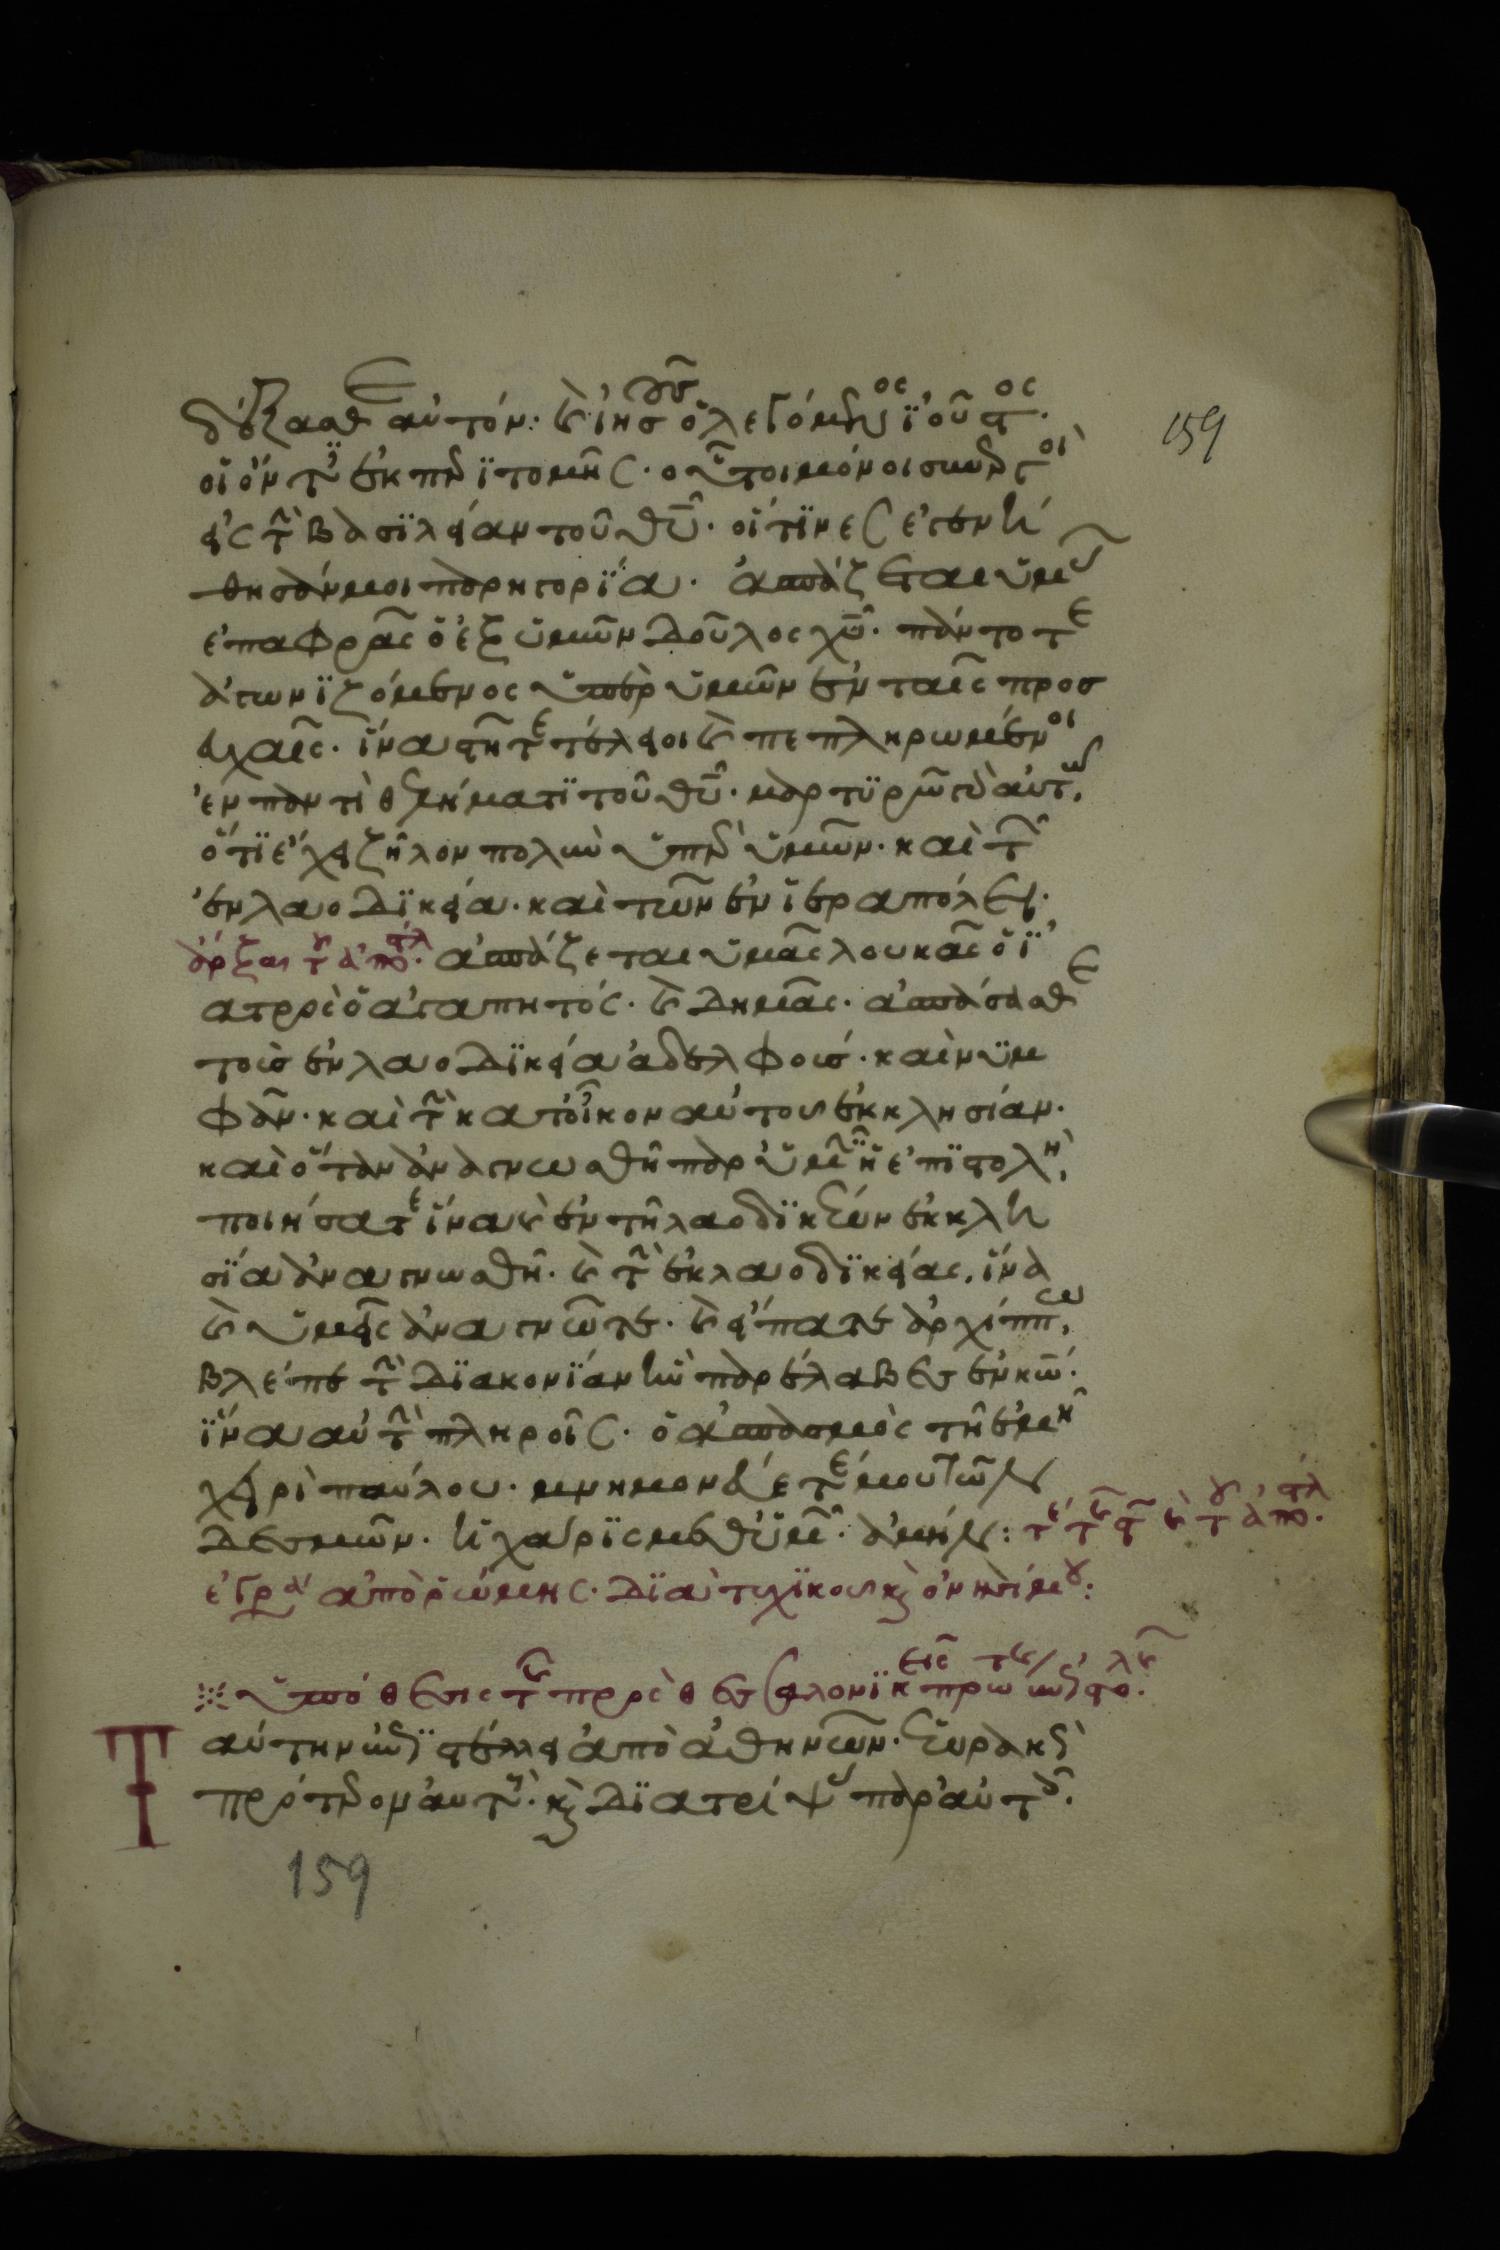 δέξασθε αὐτόν: καὶ ἰησοῦς ὁ λεγόμενος ἰοῦστος.
οἱ ὄντες ἐκ περιτομῆς. οὗτοι μόνοι συνεργοὶ
εἰς τὴν βασιλείαν τοῦ θυ. οἵτινες ἐγενή
θησάν μοι παρηγορία. ἀσπάζεται ὑμᾶς
ἐπαφρᾶς ὁ ἐξ ὑμῶν δοῦλος χυ. πάντοτε
ἀγωνιζόμενος ὑπὲρ ὑμῶν ἐν ταῖς προσ
ευχαῖς. ἵνα στῆτε τέλειοι καὶ πεπληρωμένοι
ἐν παντὶ θελήματι τοῦ θυ. μαρτυρῶ γὰρ αὐτῶ,
ὅτι ἔχει ζῆλον πολὺν ὑπὲρ ὑμῶν. καὶ τῶν
ἐν λαοδικεία. καὶ τῶν ἐν ἱεραπόλει.
ἄρξαι τοῦ ἀποστόλου. ἀσπάζεται ὑμᾶς λουκᾶς ὁ ἰ
ατρὸς ὁ ἀγαπητός. καὶ δημᾶς. ἀσπάσασθε
τοὺς ἐν λαοδικεία ἀδελφούς. καὶ νυμ
φᾶν. καὶ τὴν κατοῖκον αὐτοῦ ἐκκλησίαν.
καὶ ὅταν ἀναγνωσθῆ παρ' ὑμῖν ἡ ἐπιστολὴ,
ποιήσατε ἵνα καὶ ἐν τῆ λαοδικέων ἐκκλη
σία ἀναγνωσθῆ. καὶ τὴν ἐκ λαοδικείας, ἵνα
καὶ ὑμεῖς ἀναγνῶτε. καὶ εἴπατε ἀρχίππω,
βλέπε τὴν διακονίαν ἣν παρέλαβες ἐν κω.
ἵνα αὐτὴν πληροῖς. ὁ ἀσπασμὸς τῆ ἐμῆ
χειρὶ παύλου. μνημονεύετέ μου τῶν
δεσμῶν. ἡ χάρις μεθ' ὑμῶν. ἀμήν:
ἐγράφη ἀπὸ ῥώμης. διὰ τυχικοῦ καὶ ὀνησίμου:
ὑπόθεσις τῆς πρὸς θεσσαλονικεῖς πρώτης ἐπιστολῆς.
Ταύτην ἐπιστέλλει ἀπὸ ἀθηνῶν. ἑωρακὼς
πρότερον αὐτοὺς. καὶ διατρίψας παρ' αὐτοῖς.
159
159